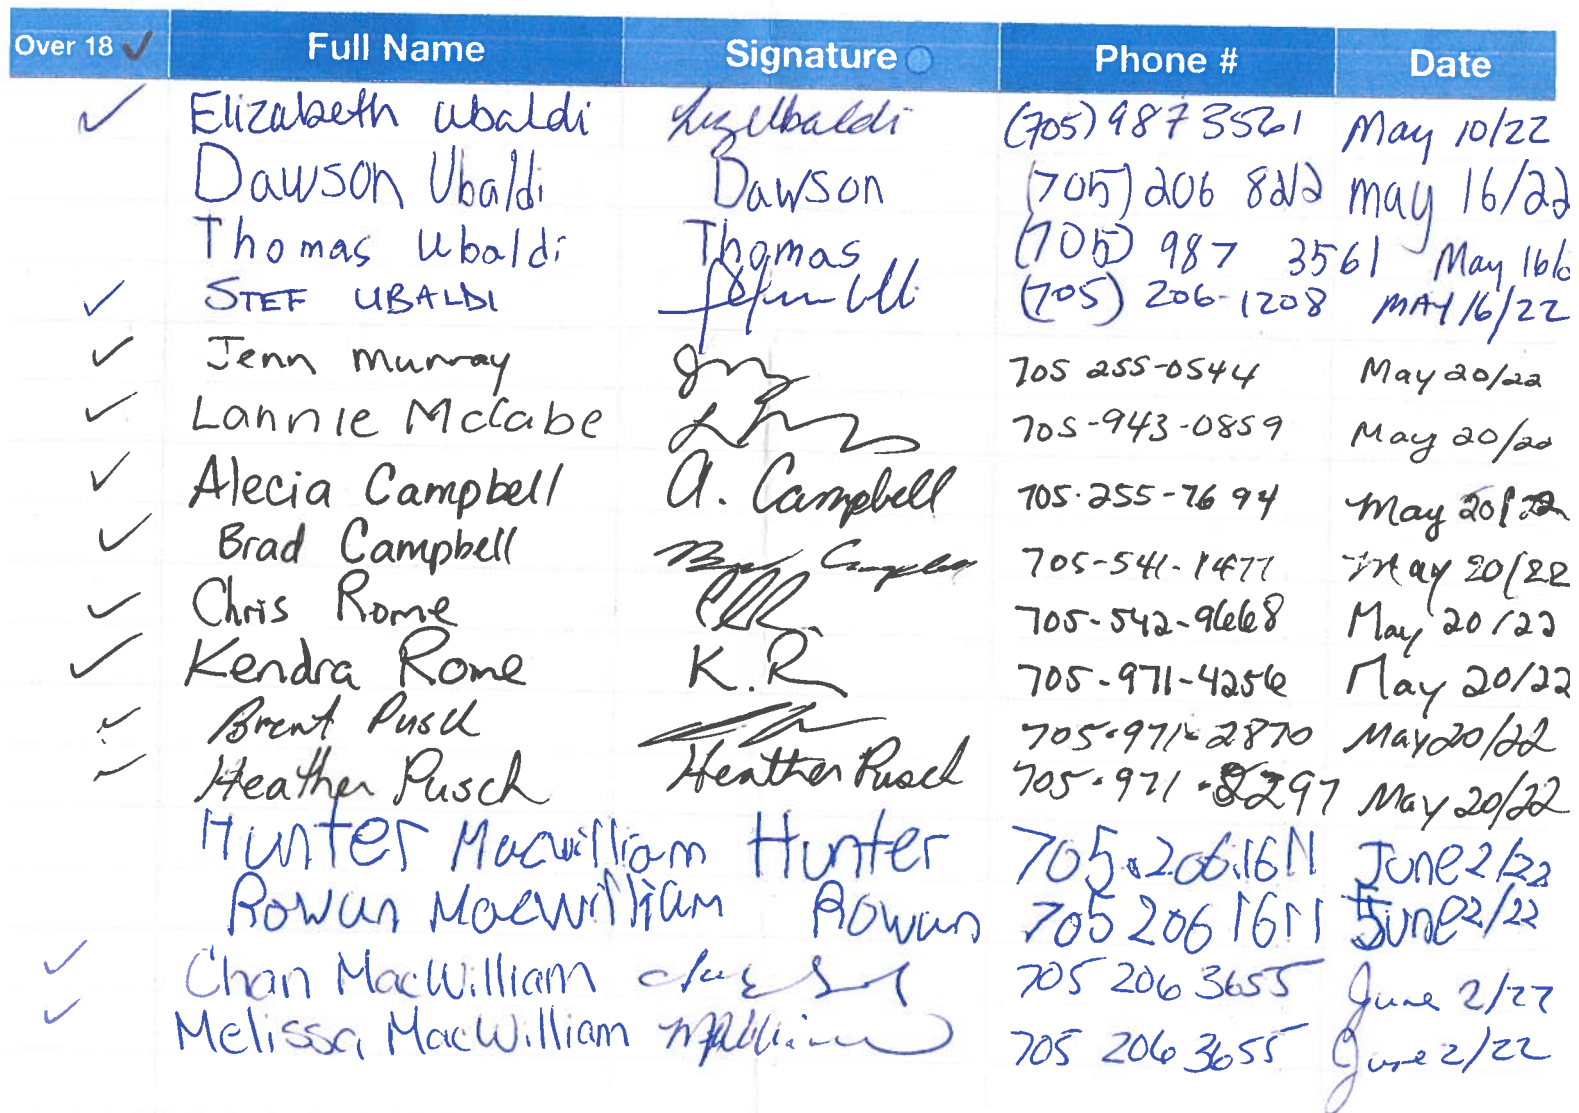 Over 18 ✓ Full Name Signature Phone # Date
✓ Elizabeth Ubaldi Liz Ubaldi (705) 987 3561 May 10/22
Dawson Ubaldi Dawson (705) 206 8212 may 16/22
Thomas Ubaldi Thomas (705) 987 3561 May 16
✓ STEF UBALDI (705) 206-1208 MAY 16/22
✓ Jenn Murray 705 255-0544 May 20/22
✓ Lannie McCabe 705-943-0859 May 20/22
✓ Alecia Campbell A. Campbell 705-255-7694 May 20/22
✓ Brad Campbell Brad Campbell 705-541-1477 May 20/22
✓ Chris Rome 705-542-9668 May 20/22
✓ Kendra Rome K.R 705-971-4256 May 20/22
✓ Brent Pusch 705-971-2870 May 20/22
✓ Heather Pusch Heather Pusch 705-971-2297 May 20/22
Hunter Macwilliam Hunter 705.206.1611 June 2/22
Rowan Macwilliam Rowan 705 206 1611 June 2/22
✓ Chan MacWilliam 705 206 3655 June 2/22
✓ Melissa MacWilliam 705 206 3655 June 2/22